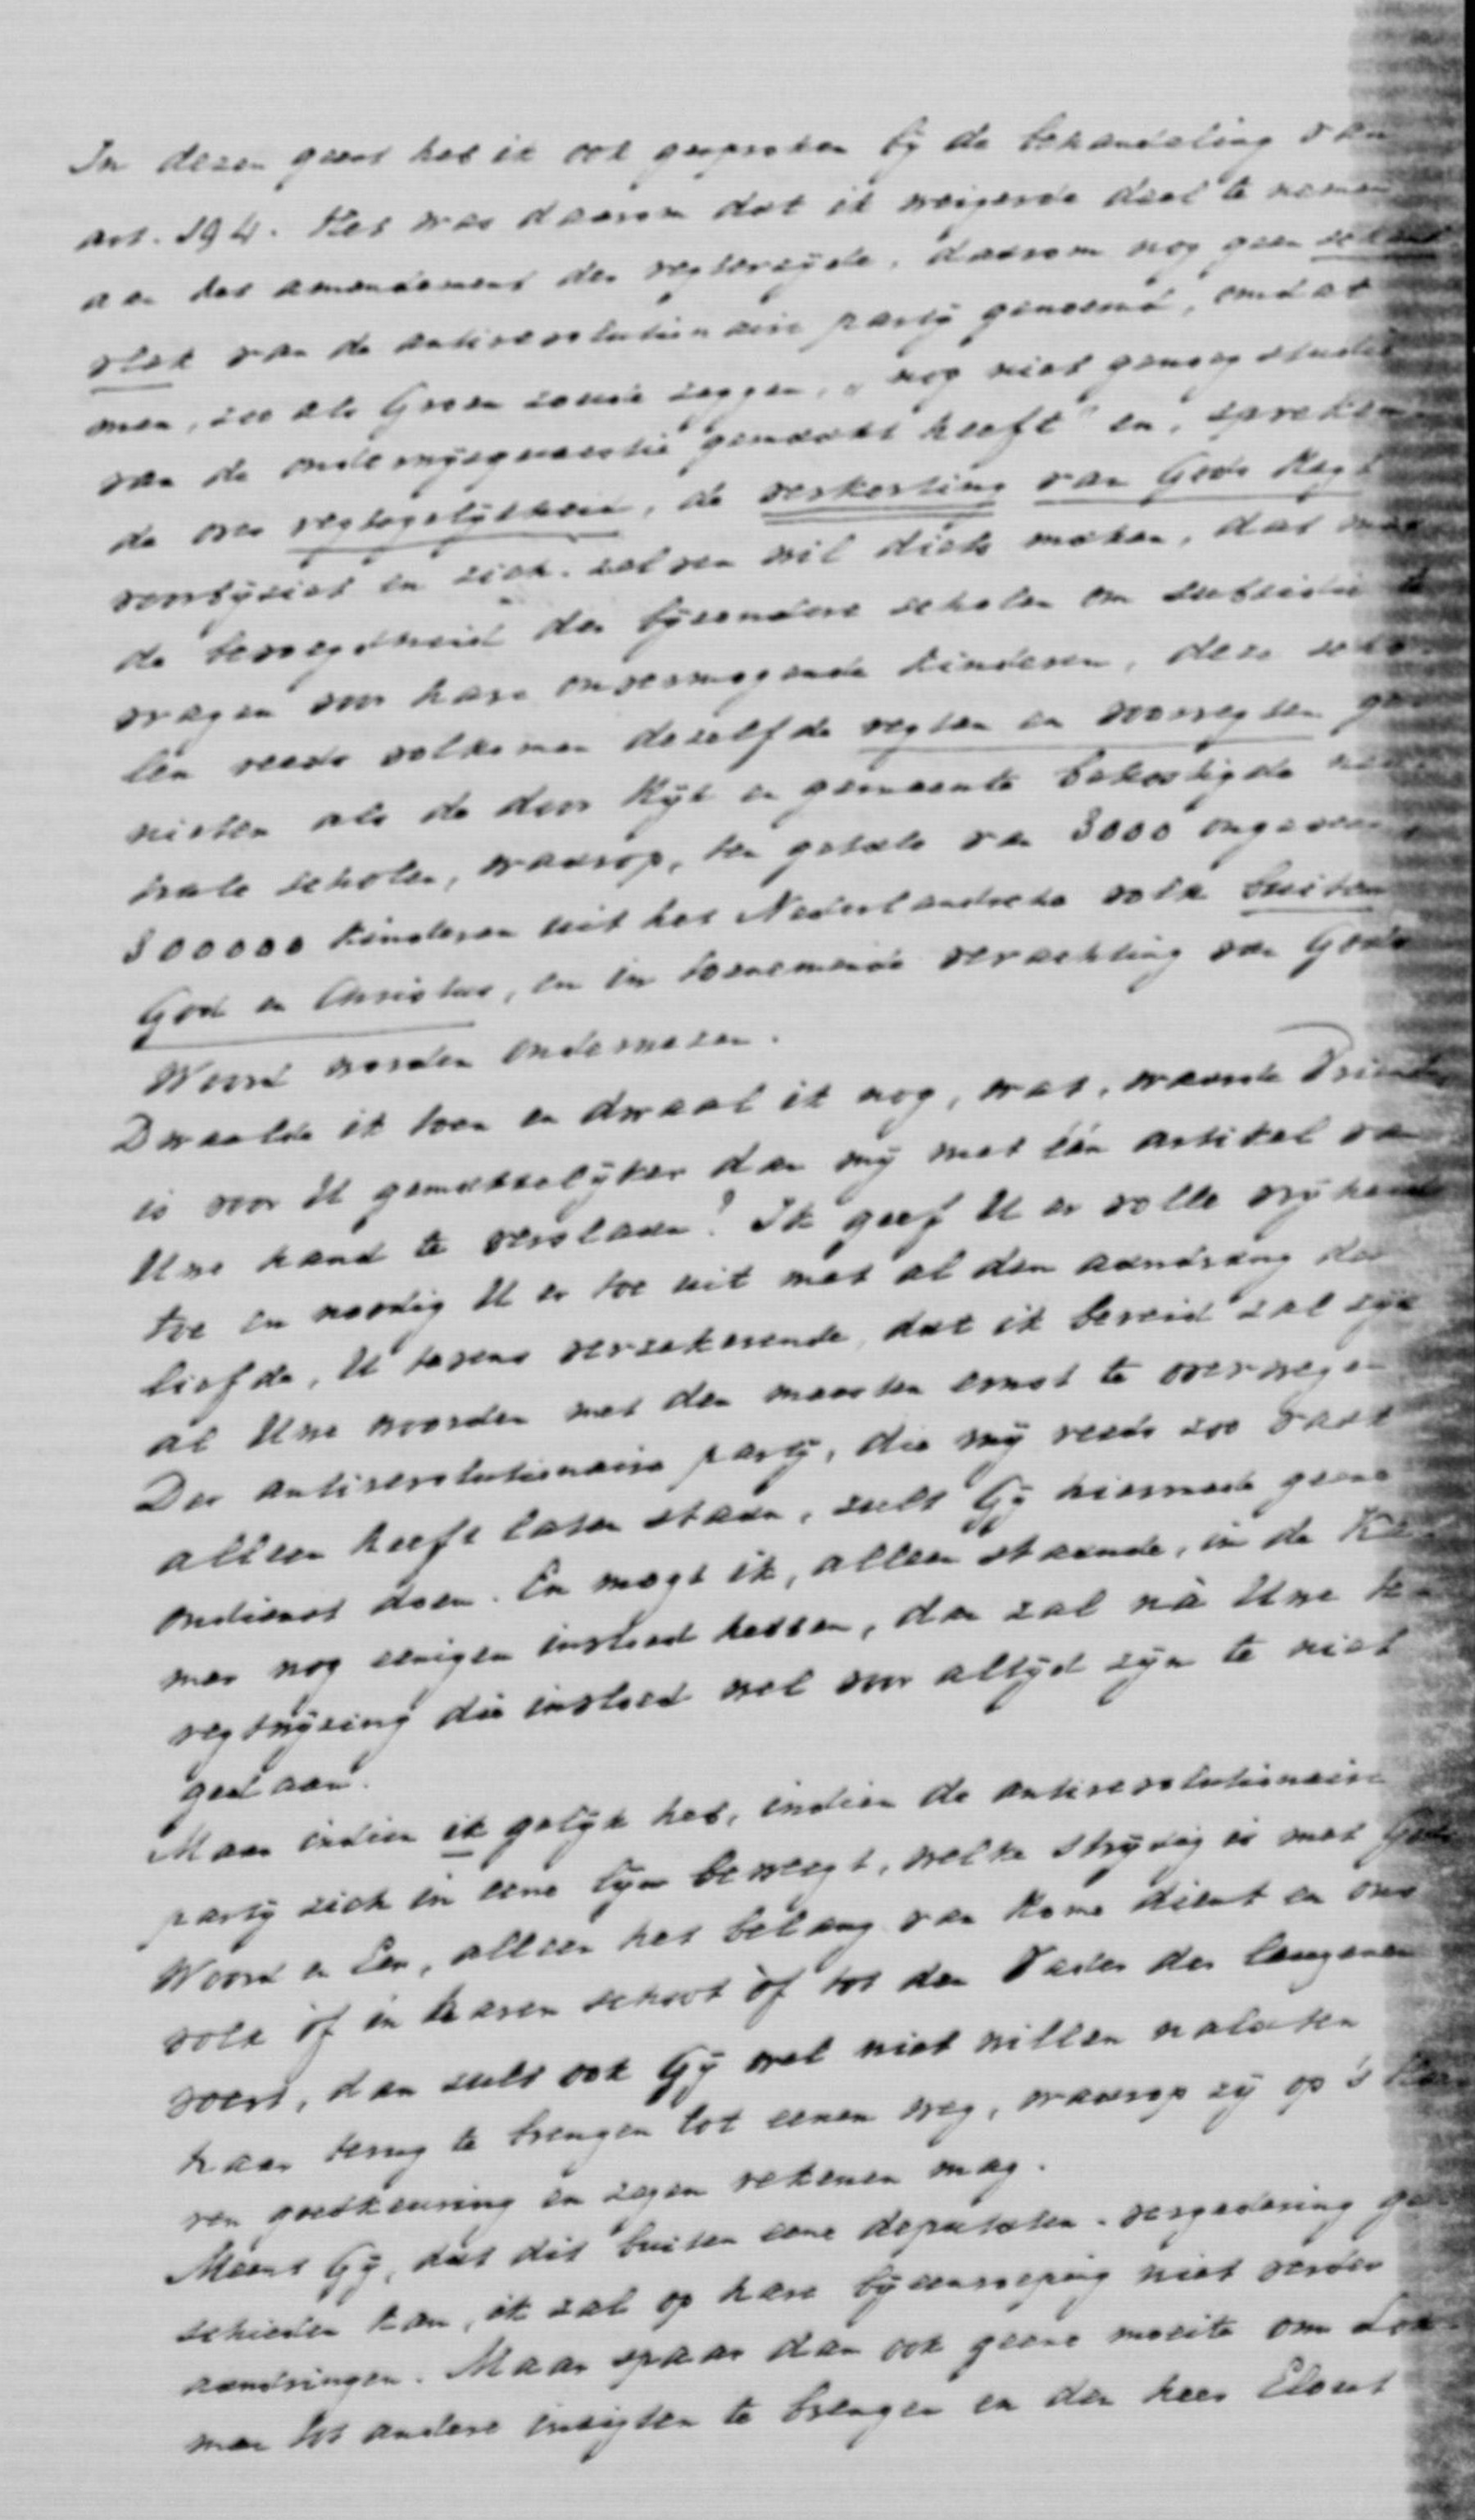 In dezen geest heb ik ook gesproken by de behandeling van
art. 194. Het was daarom dat ik weigerde deel te nemen
aan het amendement der regterzyde, daarom nog geen
vlek van de antirevolutionaire party genoemd, omdat
men, zoo als Groen zoude zeggen, „nog niet genoeg studie
van de onderwysquaestie gemaakt heeft" en, spreken-
de over regtsgelykheid, de verkorting van Gods Regt
voorbyziet en zich-zelven wil diets maken, dat met
de bevoegdheid der byzondere scholen om subsidie te
vragen voor hare onvermogende kinderen, deze scho-
len reeds volkomen dezelfde regten en voorregten ge-
nieten als de door Ryk en gemeente bekostigde neu-
trale scholen, waarop, ten getale van 3000 ongeveer,
300000 kinderen uit het Nederlandsche volk buiten
God en Christus, en in toenemende verachting van Gods
Woord worden onderwezen.
Dwaalde ik toen en dwaal ik nog, wat, waarde Vriend,
is voor U gemakkelyker dan my met één artikel van
Uwe hand te verslaan? Ik geef U er volle vryheid
toe en noodig U er toe uit met al den aandrang der
liefde, U tevens verzekerende, dat ik bereid zal zyn
al Uwe woorden met den meesten ernst te overwegen
Der antirevolutionaire party, die my reeds zoo vaak
alleen heeft laten staan, zult Gy hiermede geene
ondienst doen. En mogt ik, alleen staande, in de Ka-
mer nog eenigen invloed hebben, dan zal nà Uwe te-
regtwyzing die invloed wel voor altyd zyn te niet
gedaan.
Maar indien ik gelyk heb, indien de antirevolutionaire
party zich in eene lyn beweegt, welke strydig is met Gods
Woord en Eer, alleen het belang van Rome dient en ons
volk òf in haren schoot òf tot den Vader der leugenen
voert, dan zult ook Gy wel niet willen nalaten
haar terug te brengen tot eenen weg, waarop zy op 's Hee-
ren goedkeuring en zegen rekenen mag.
Meent Gy, dat dit buiten eene deputaten-vergadering ge-
schieden kan, ik zal op hare byeenroeping niet verder
aandringen. Maar spaar dan ook geene moeite om Loh-
man tot andere inzigten te brengen en den heer Elout